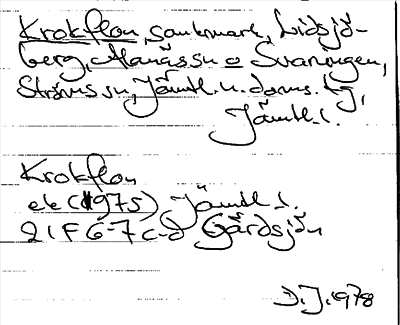 Krokflon, sankmark, Lidsjö-
berg, Alanäs sn o Svaningen,
Ströms sn, Jämtl. n. doms. tg,
Jämtl. l.
Krokflon
ek (1975) Jämtl. l.
21F 6-7 c-d Gårdsjön
D.J. 1978